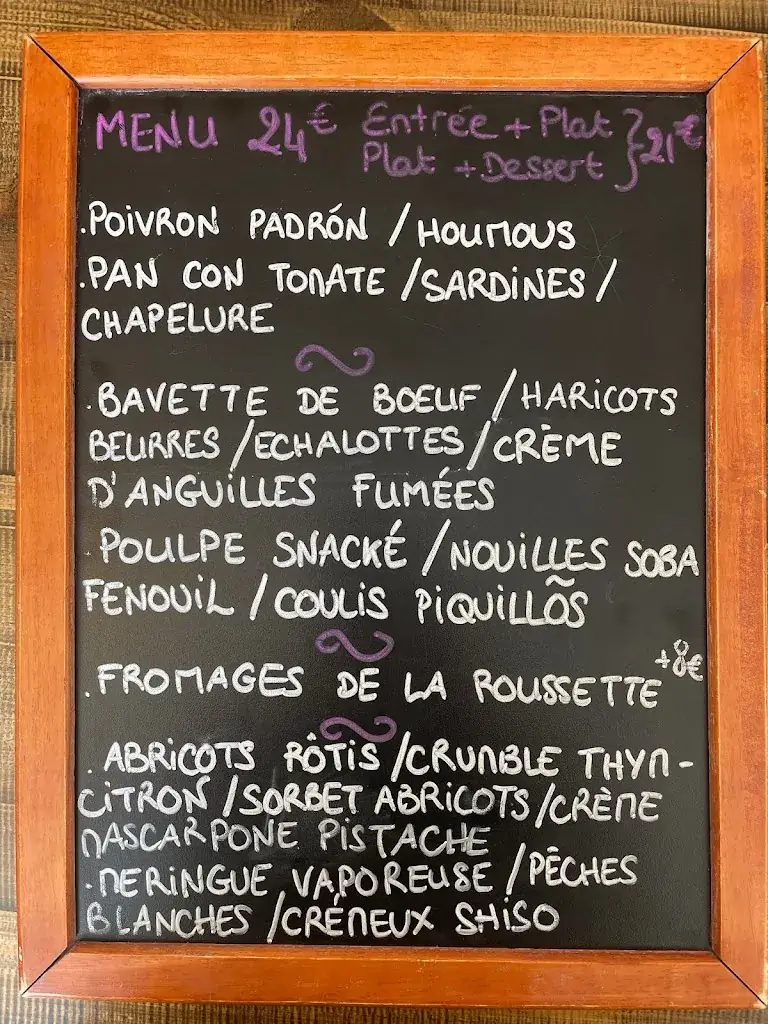 MENU 24€ Entrée + Plat } 21€
Plat + Dessert
.POIVRON PADRÓN / HOUMOUS
.PAN CON TOMATE / SARDINES /
CHAPELURE
.BAVETTE DE BOEUF / HARICOTS
BEURRES / ECHALOTTES / CRÈME
D'ANGUILLES FUMÉES
.POULPE SNACKÉ / NOUILLES SOBA
FENOUIL / COULIS PIQUILLÕS
.FROMAGES DE LA ROUSSETTE +8€
.ABRICOTS RÔTIS / CRUMBLE THYM-
CITRON / SORBET ABRICOTS / CRÈME
MASCARPONE PISTACHE
.MERINGUE VAPOREUSE / PÊCHES
BLANCHES / CRÉMEUX SHISO